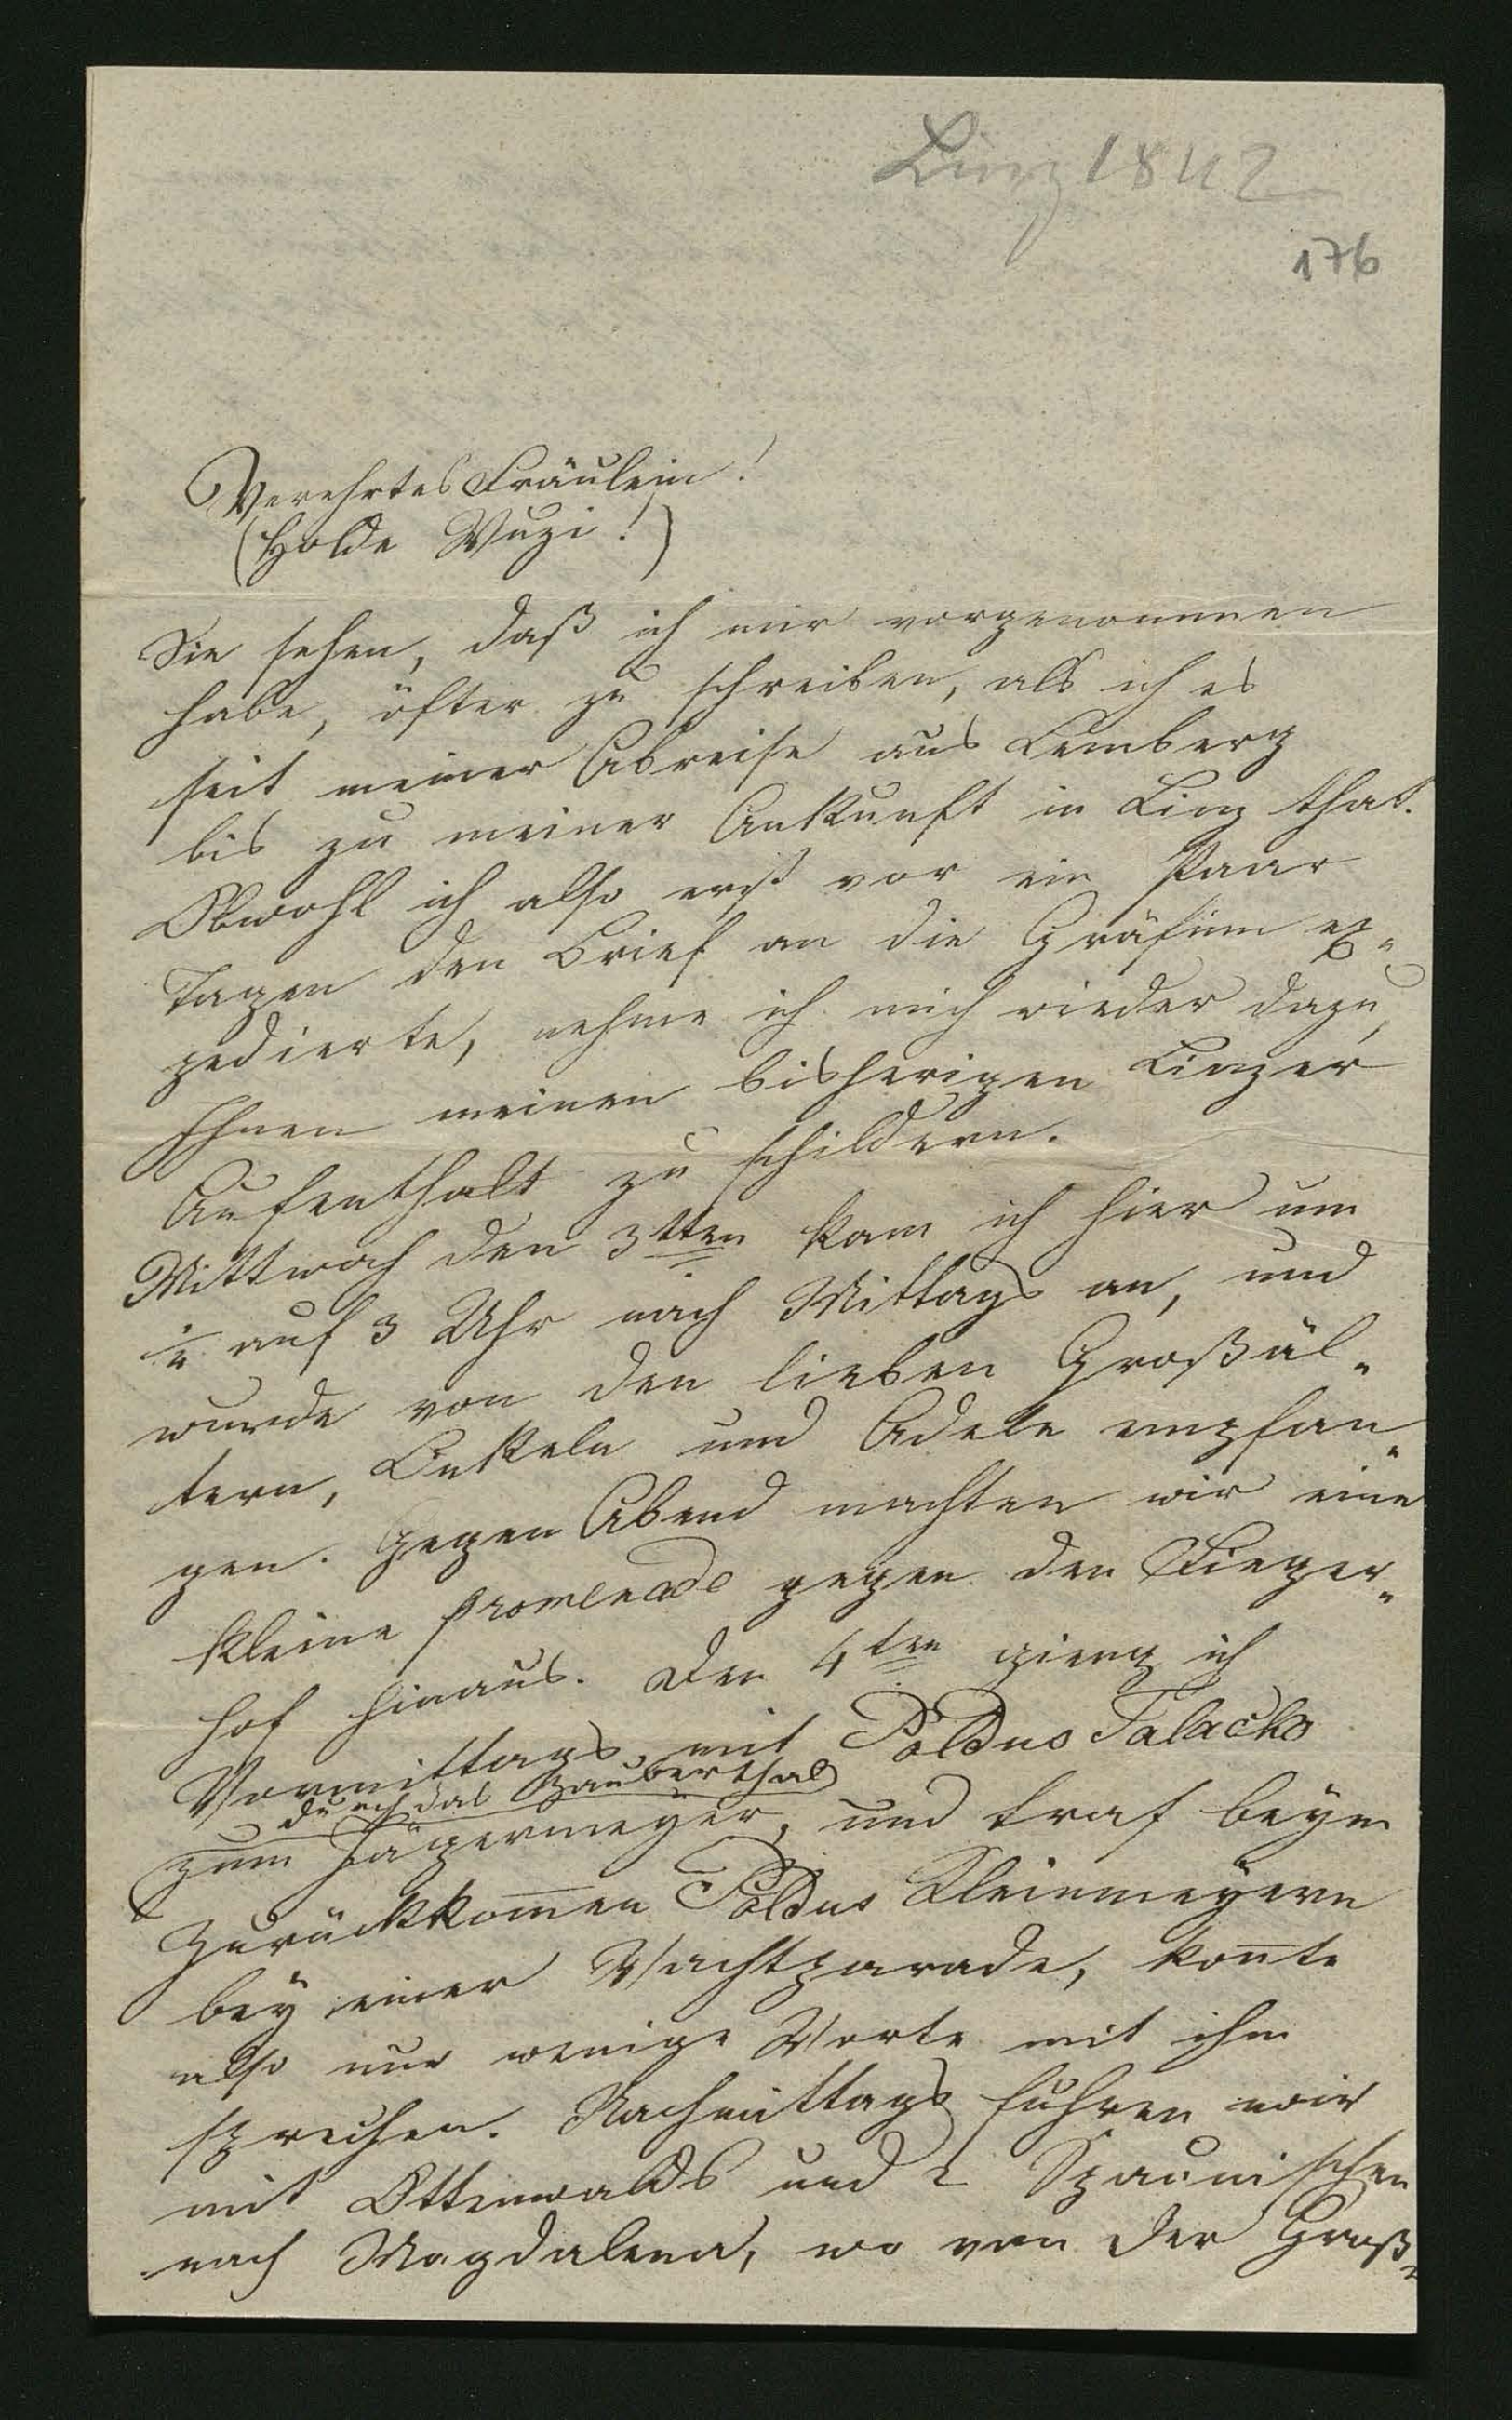 Linz 1842
176
Verehrtes Fräulein!
(Holde Wuzi!)
Sie sehen, daß ich mir vorgenommen
habe, öfter zu schreiben, als ich es
seit meiner Abreise aus Lemberg
bis zu meiner Ankunft in Linz that.
Obwohl ich also erst vor ein Paar
Tagen den Brief an die Gräfinn ex-
pedierte, nehme ich mich wieder dazu,
Ihnen meinen bisherigen Linzer
Aufenthalt zu schildern.
Mittwoch den 3tten kam ich hier um
½ auf 3 Uhr nach Mittags an, und
wurde von den lieben Großäl-
tern, Onkeln und Adele empfan-
gen. Gegen Abend machten wir eine
kleine Promenade gegen den
hof hinaus. Den 4ten gieng ich
Vormittags mit Poldus Talacko
durch das Zauberthal
zum Jägermeyer, und traf beym
Zurückkom̅en Poldus Kleinmeyern
bey einer Wachtparade, kon̅te
also nur wenige Worte mit ihm
sprechen. Nachmittags fuhren wir
mit Ottenwalds und 2 Spaunischen
nach Magdalena, wo von der Groß-